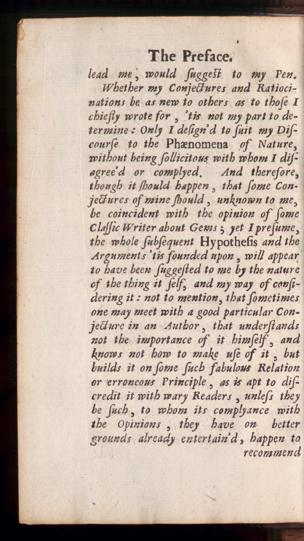 The Preface.
lead me, would ſuggeſt to my Pen.
Whether my Conjectures and Ratioci-
nations be as new to others as to thoſe I
chiefly wrote for, 'tis not my part to de-
termine: Only I deſign'd to ſuit my Diſ-
courſe to the Phænomena of Nature,
without being ſollicitous with whom I diſ-
agree'd or complyed. And therefore,
though it ſhould happen, that ſome Con-
jectures of mine ſhould, unknown to me,
be coincident with the opinion of ſome
Claſſic Writer about Gems; yet I preſume,
the whole ſubſequent Hypotheſis and the
Arguments 'tis founded upon, will appear
to have been ſuggeſted to me by the nature
of the thing it ſelf, and my way of conſi-
dering it: not to mention, that ſometimes
one may meet with a good particular Con-
jecture in an Author, that underſtands
not the importance of it himſelf, and
knows not how to make uſe of it, but
builds it on ſome ſuch fabulous Relation
or erroneous Principle, as is apt to diſ-
credit it with wary Readers, unleſs they
be ſuch, to whom its complyance with
the Opinions, they have on better
grounds already entertain'd, happen to
recommend